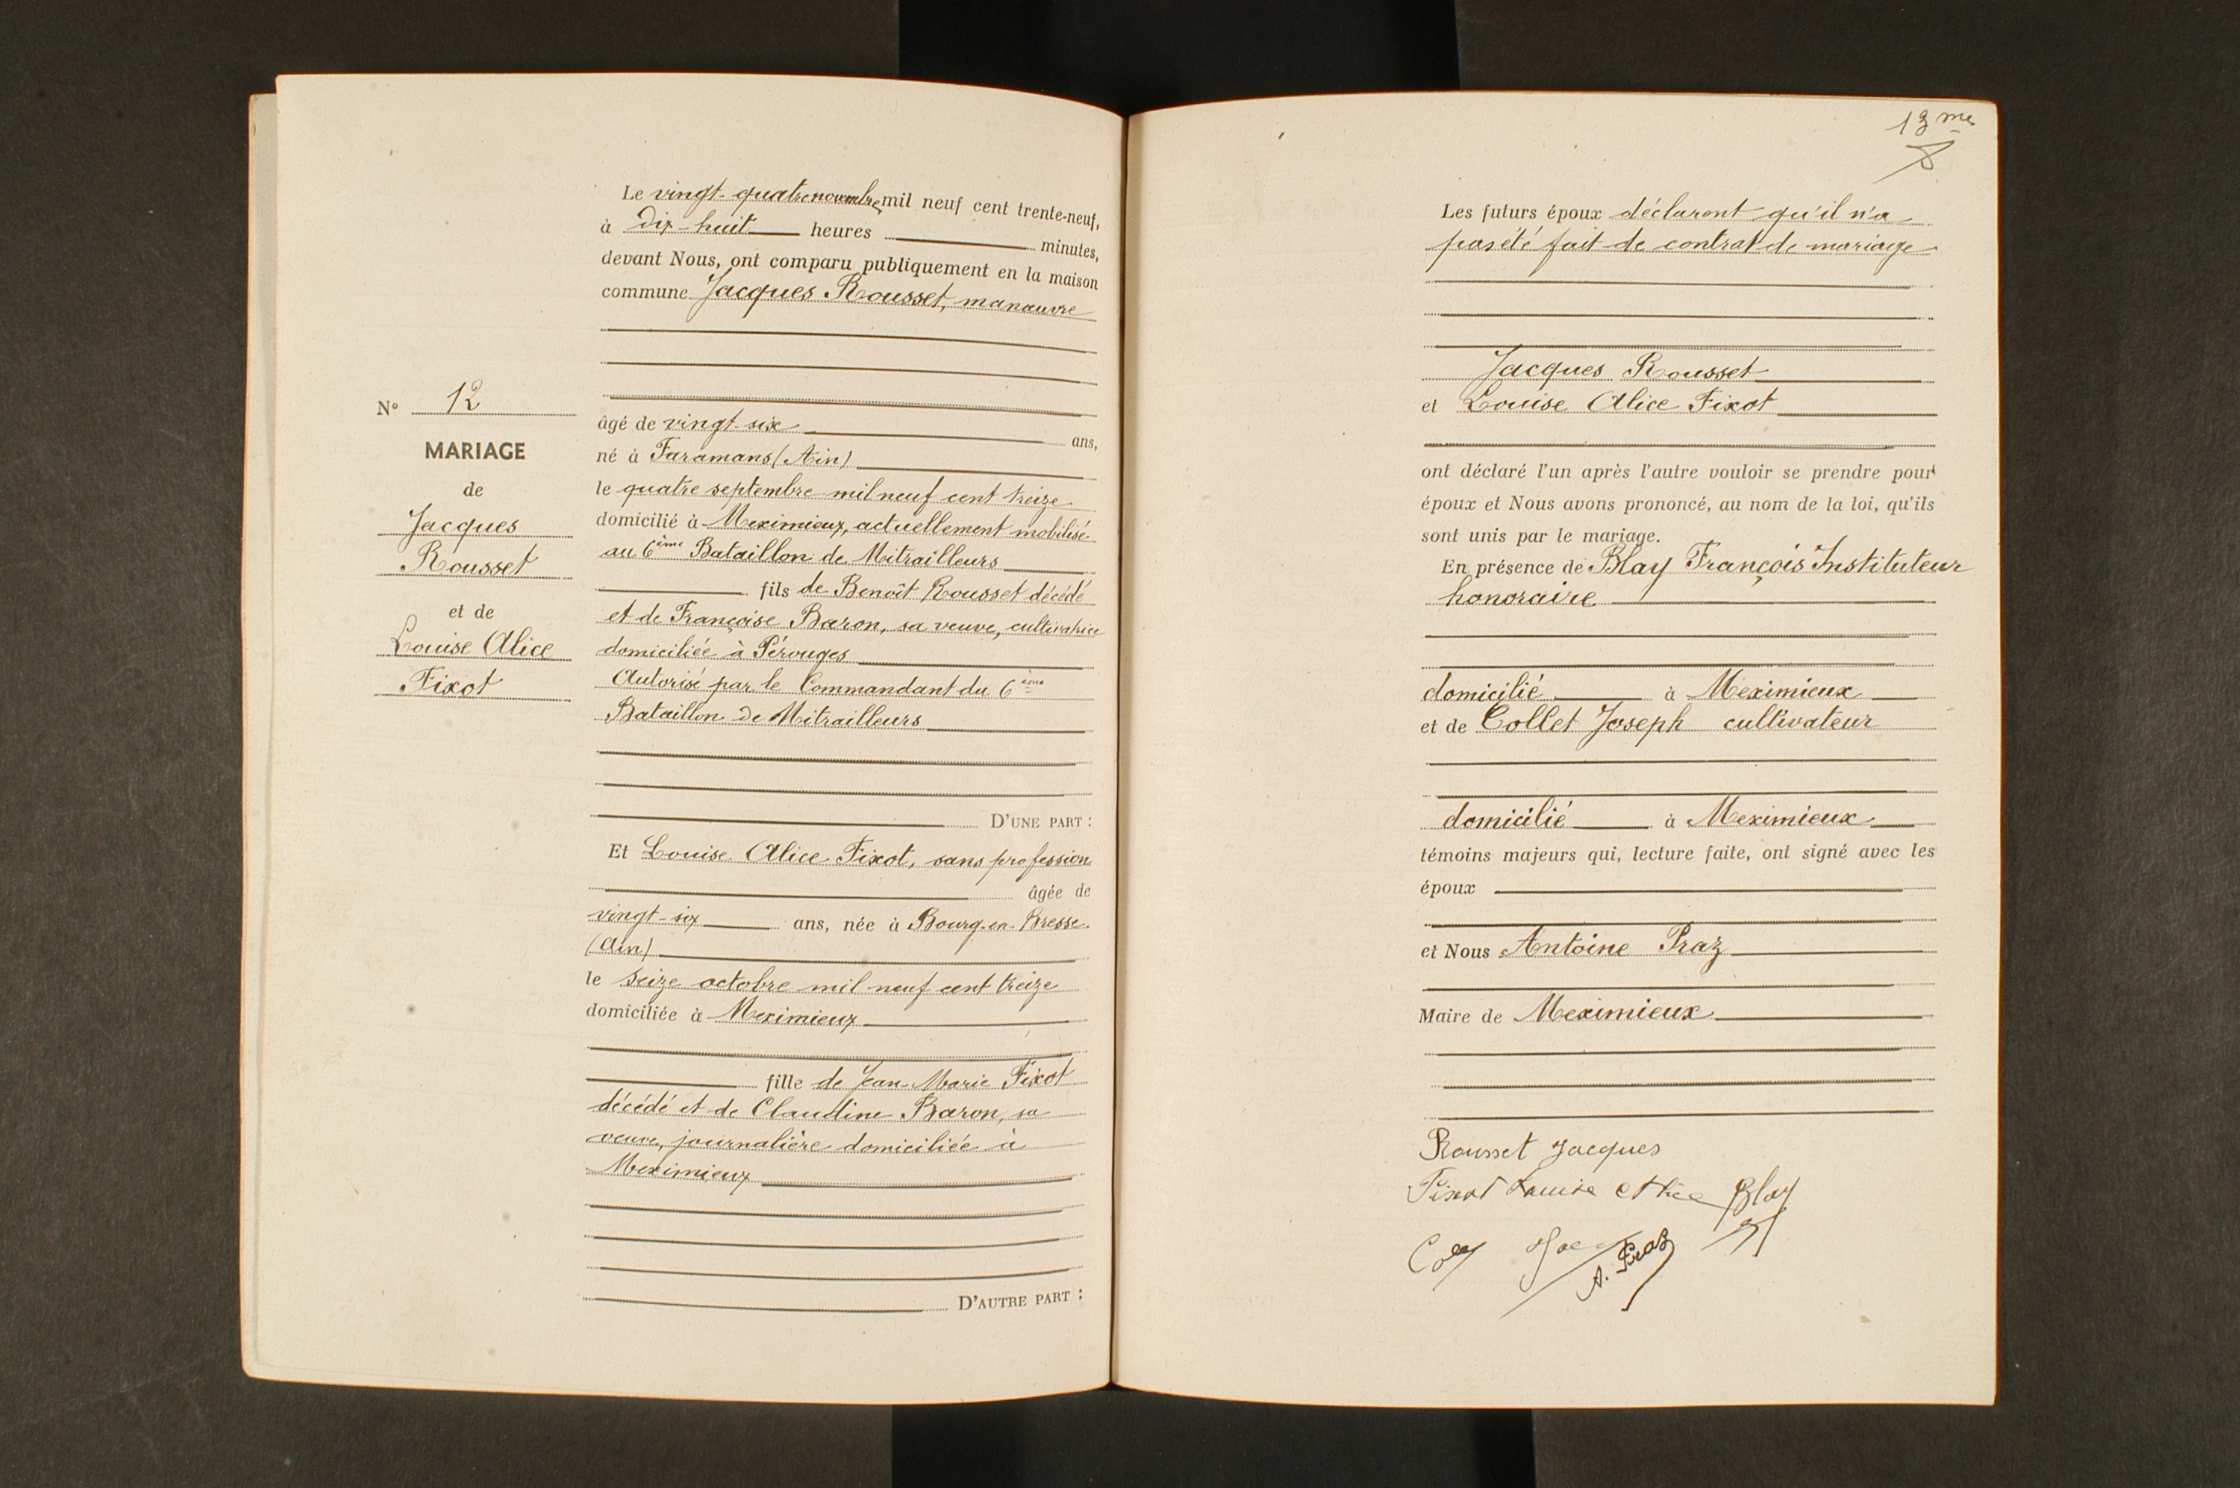 Nº 12
MARIAGE
de
Jacques
Rousset
et de
Louise Alice
Fixot
Le vingt-quatre novembre mil neuf cent trente-neuf,
à Dix-huit heures minutes,
devant Nous, ont comparu publiquement en la maison
commune Jacques Rousset, manœuvre
âgé de vingt-six ans,
né à Faramans (Ain)
le quatre septembre mil neuf cent treize
domicilié à Meximieux, actuellement mobilisé
au 6ème Bataillon de Mitrailleurs
fils de Benoît Rousset décédé
et de Françoise Baron, sa veuve, cultivatrice
domiciliée à Pérouges
Autorisé par le Commandant du 6ème
Bataillon de Mitrailleurs
D'UNE PART :
Et Louise Alice Fixot, sans profession
âgée de
vingt-six ans, née à Bourg-en-Bresse
(Ain)
le seize octobre mil neuf cent treize
domiciliée à Meximieux
fille de Jean Marie Fixot
décédé et de Claudine Baron, sa
veuve, journalière domiciliée à
Meximieux
D'AUTRE PART :
13me
Les futurs époux déclarent qu'il n'a
pas été fait de contrat de mariage
Jacques Rousset
et Louise Alice Fixot
ont déclaré l'un après l'autre vouloir se prendre pour
époux et Nous avons prononcé, au nom de la loi, qu'ils
sont unis par le mariage.
En présence de Blay François Instituteur
honoraire
domicilié à Meximieux
et de Collet Joseph cultivateur
domicilié à Meximieux
témoins majeurs qui, lecture faite, ont signé avec les
époux
et Nous Antoine Praz
Maire de Meximieux
Rousset Jacques
Fixot Louise Alice Blay
A. Praz